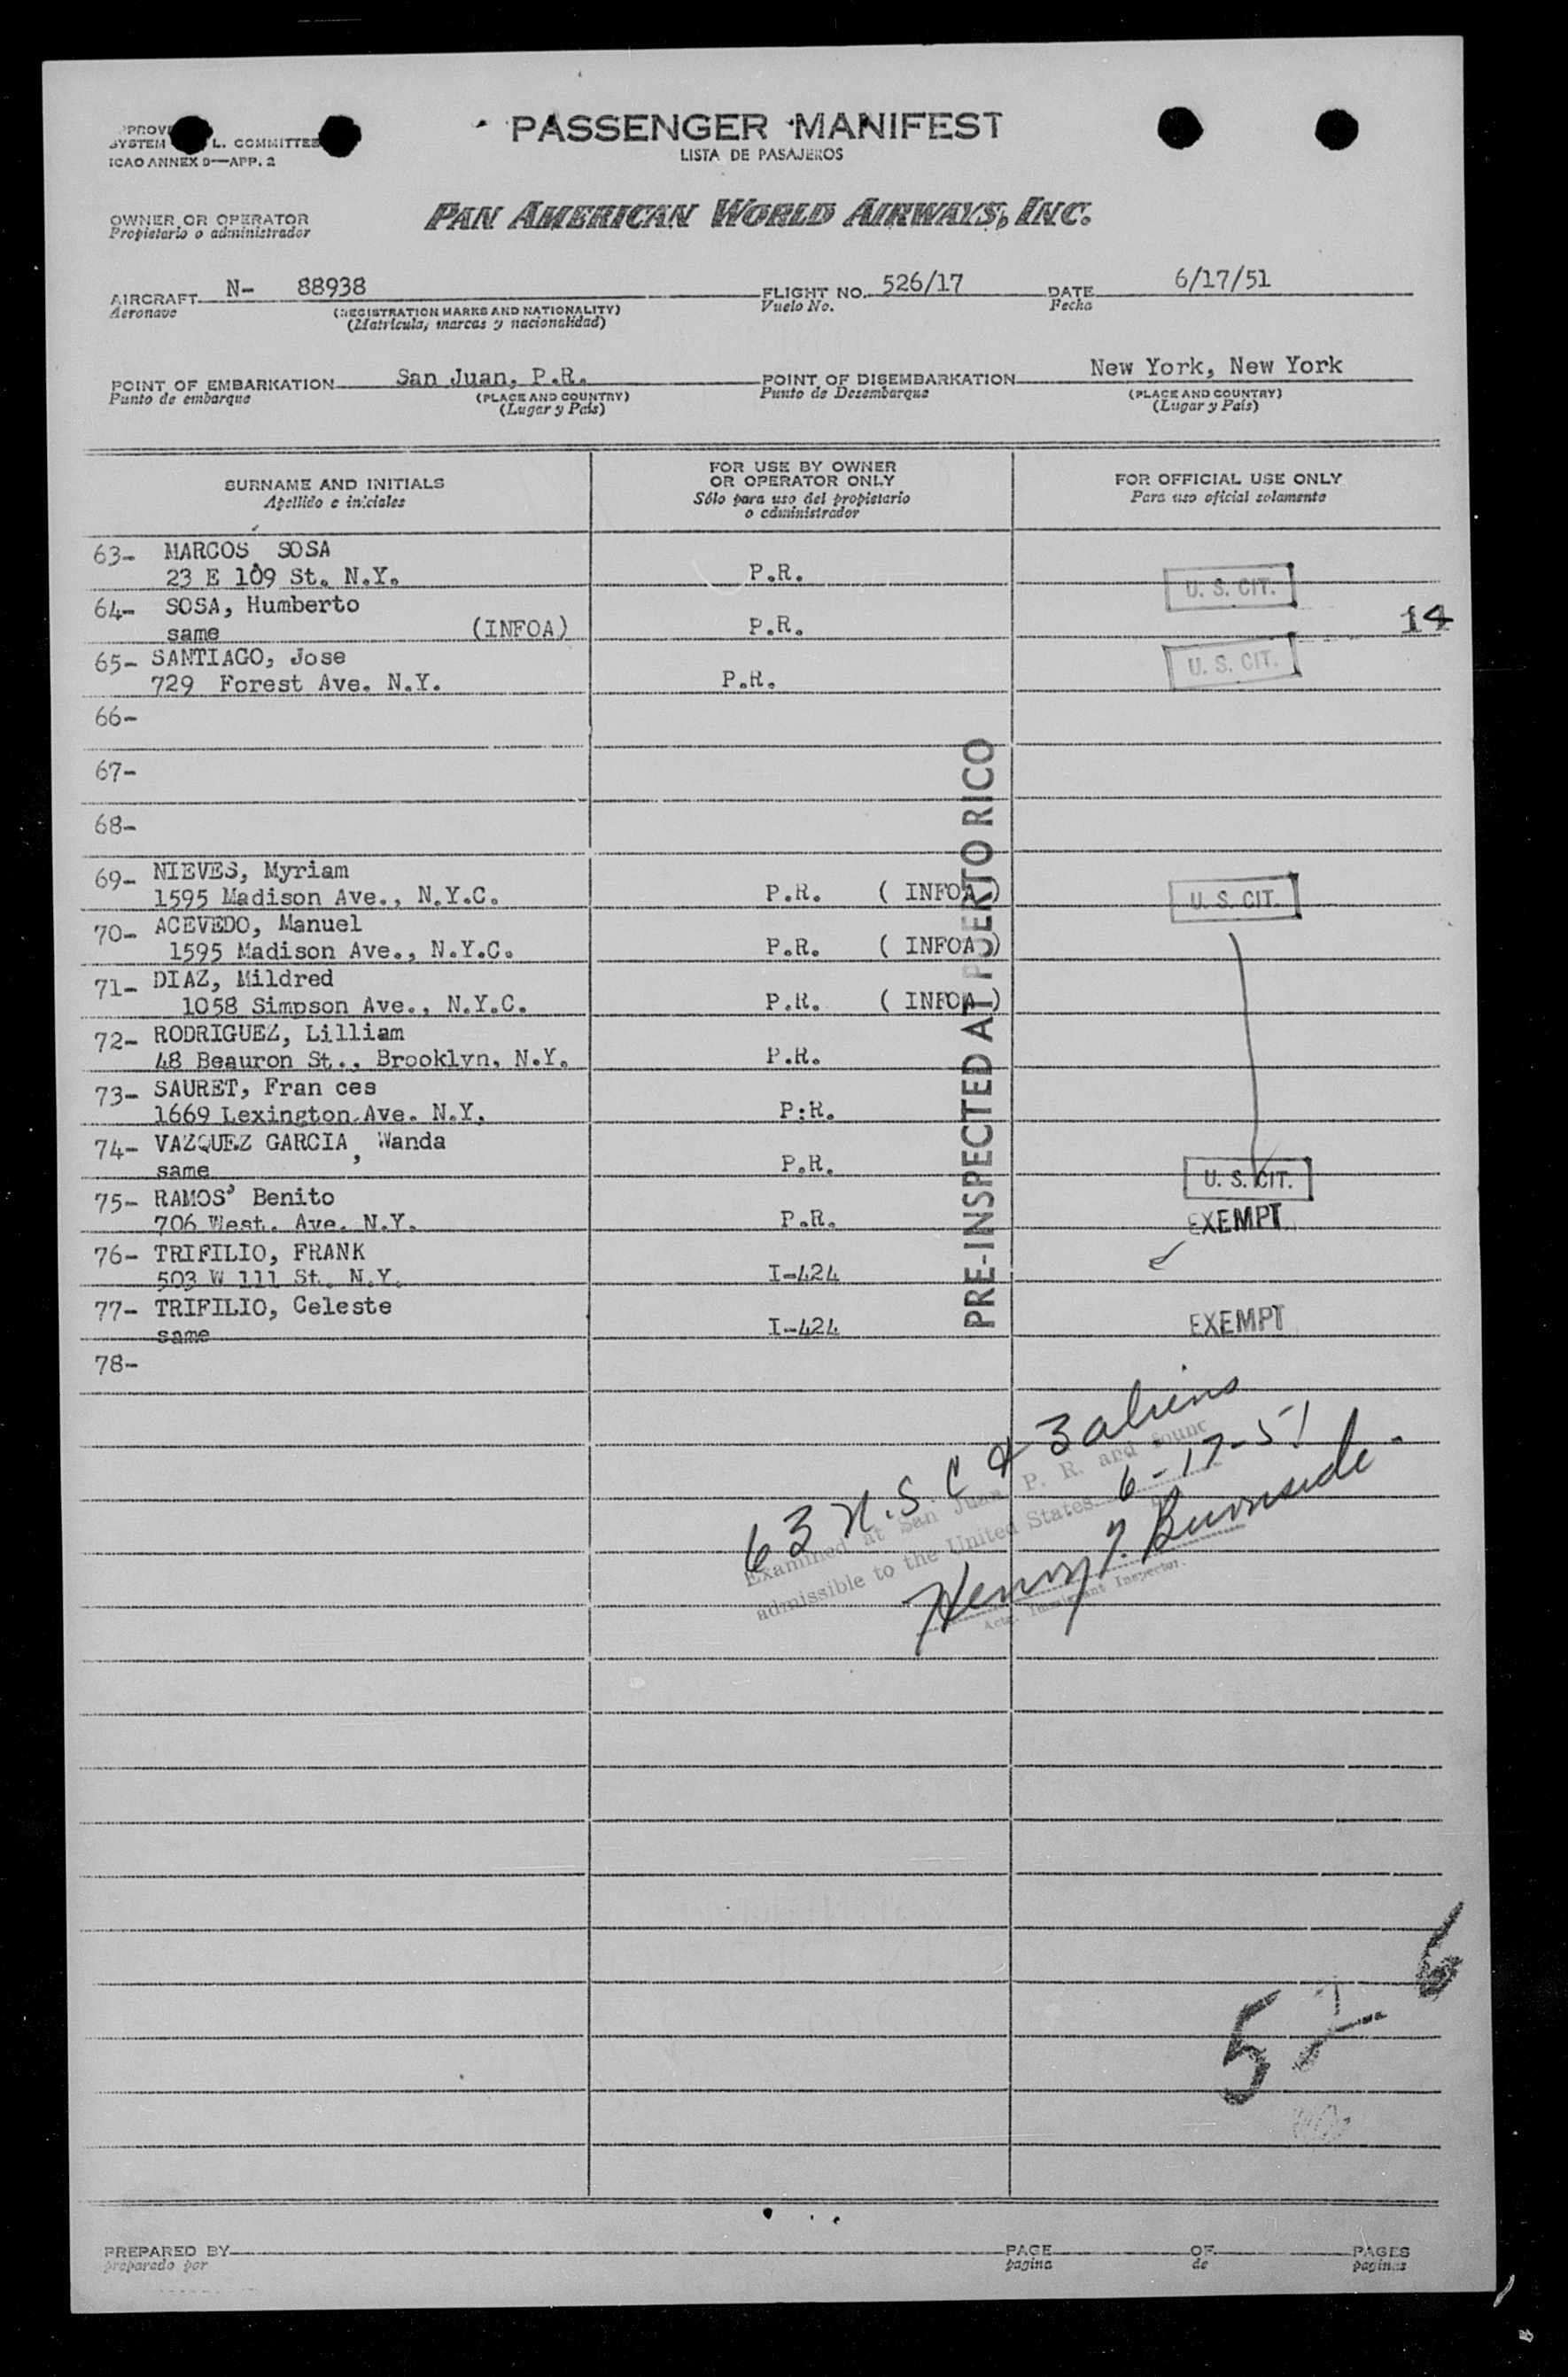 PASSENGER MANIFEST
LISTA DE PASAJEROS
SYSTEM L. COMMITTEE
ICAO ANNEX 9—APP. 2
OWNER OR OPERATOR
Propietario o administrador
PAN AMERICAN WORLD AIRWAYS, INC.
AIRCRAFT N- 88938 FLIGHT NO. 526/17 DATE 6/17/51
Aeronave (REGISTRATION MARKS AND NATIONALITY) Vuelo No. Fecha
(Matrícula, marcas y nacionalidad)
POINT OF EMBARKATION San Juan, P.R. POINT OF DISEMBARKATION New York, New York
Punto de embarque (PLACE AND COUNTRY) Punto de Desembarque (PLACE AND COUNTRY)
(Lugar y País) (Lugar y País)
SURNAME AND INITIALS
Apellido e iniciales
FOR USE BY OWNER
OR OPERATOR ONLY
Sólo para uso del propietario
o administrador
FOR OFFICIAL USE ONLY
Para uso oficial solamente
63- MARCOS SOSA
23 E 109 St. N.Y. P.R. U. S. CIT.
64- SOSA, Humberto
same (INFOA) P.R. 14
65- SANTIAGO, Jose U. S. CIT.
729 Forest Ave. N.Y. P.R.
66-
67-
68-
69- NIEVES, Myriam
1595 Madison Ave., N.Y.C. P.R. ( INFOA ) U. S. CIT.
70- ACEVEDO, Manuel
1595 Madison Ave., N.Y.C. P.R. ( INFOA )
71- DIAZ, Mildred
1058 Simpson Ave., N.Y.C. P.R. ( INFOA )
72- RODRIGUEZ, Lilliam
48 Beauron St., Brooklyn, N.Y. P.R.
73- SAURET, Fran ces
1669 Lexington Ave. N.Y. P.R.
74- VAZQUEZ GARCIA, Wanda
same P.R. U. S. CIT.
75- RAMOS, Benito
706 West. Ave. N.Y. P.R. EXEMPT
76- TRIFILIO, FRANK
503 W 111 St. N.Y. I-424
77- TRIFILIO, Celeste
same I-424 EXEMPT
78-
PRE-INSPECTED AT PUERTO RICO
63 U.S.C & 3 aliens
Examined at San Juan, P. R. and found
admissible to the United States 6-17-51
Henry J. Burnside
Actg. Immigrant Inspector.
6
5
PREPARED BY PAGE OF PAGES
preparado por pagina de paginas